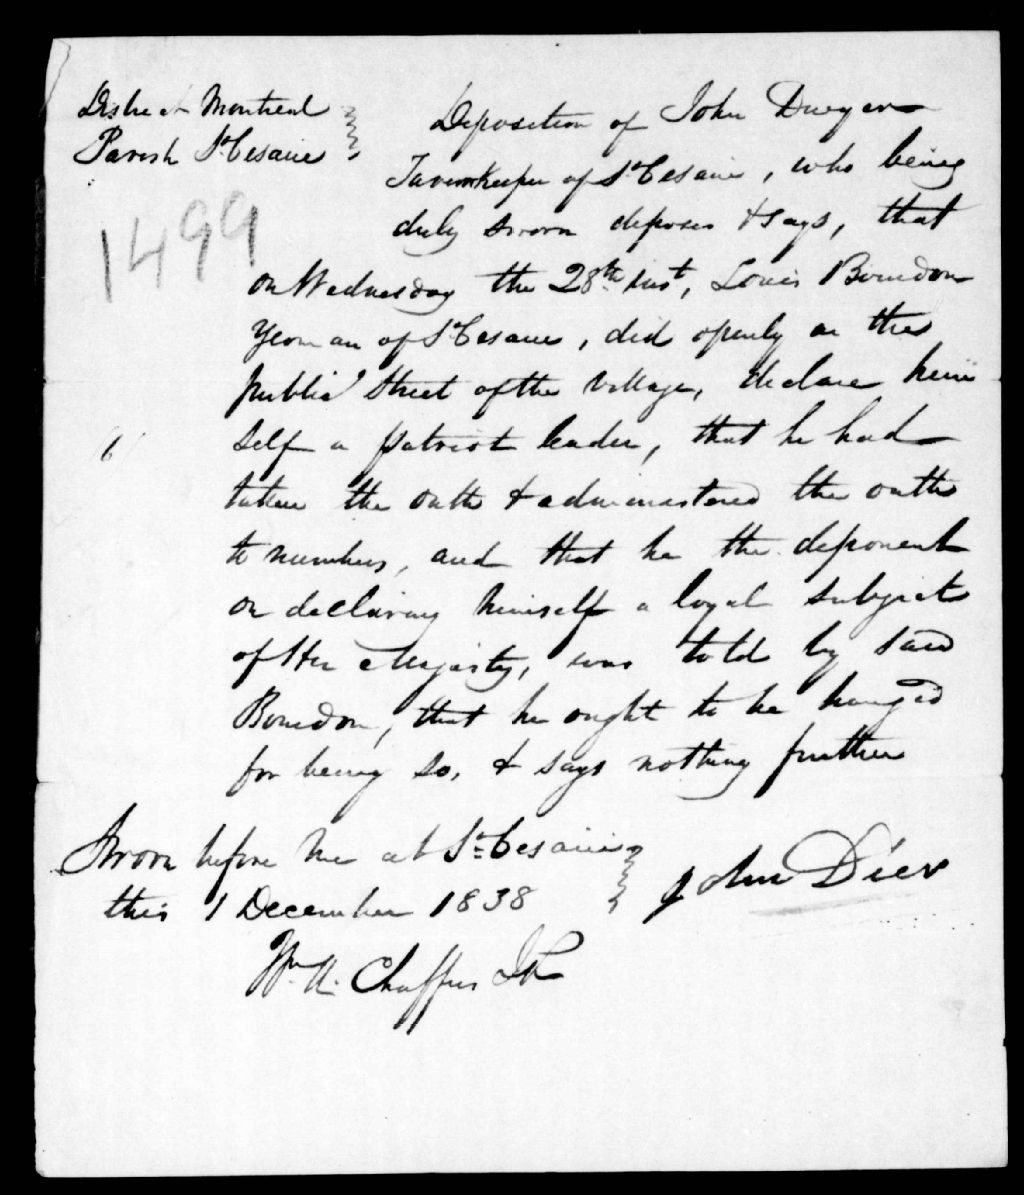 District Montreal
Parish St Cesaire
1499
Deposition of John Dwyer
Tavernkeeper of St Cesaire, who being
duly sworn deposes & says, that
on Wednesday the 28th inst, Louis Bourdon
Yeoman of St Cesaire, did openly in the
public Street of the Village, declare him
self a patriot leader, that he had
taken the oath & administered the oath
to numbers, and that he the deponent
on declaring himself a loyal subject
of Her Majesty, was told by said
Bourdon, that he ought to be hanged
for being so, & says nothing further
Sworn before me at St Cesaire
this 1 December 1838
John Dier
Wm. H. Chaffers JP